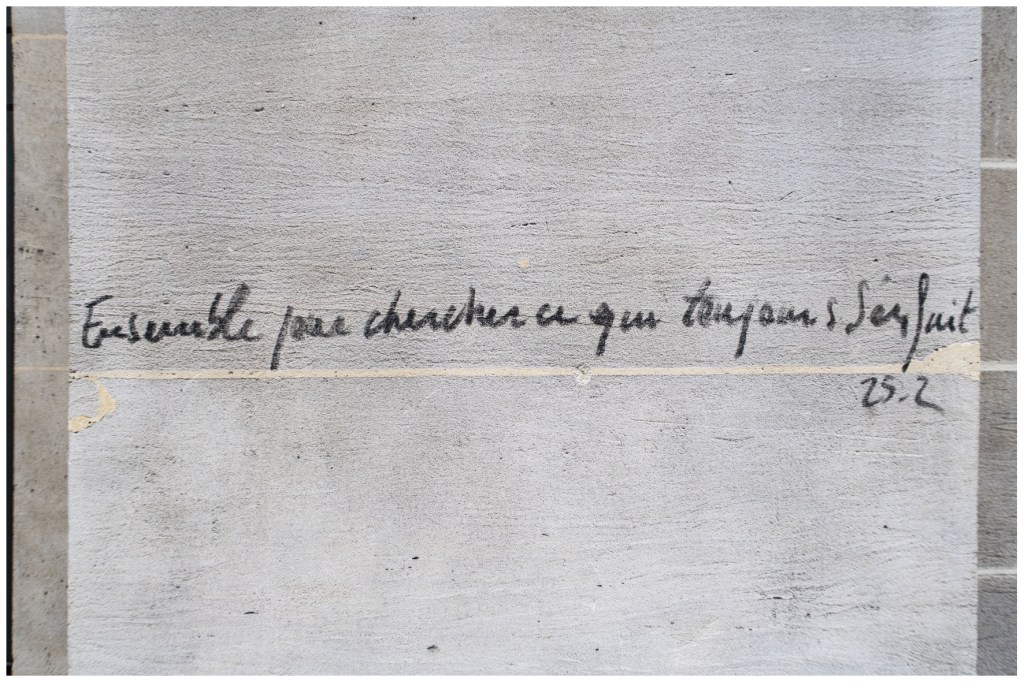 Ensemble pour chercher ce qui toujours s'enfuit
25.2